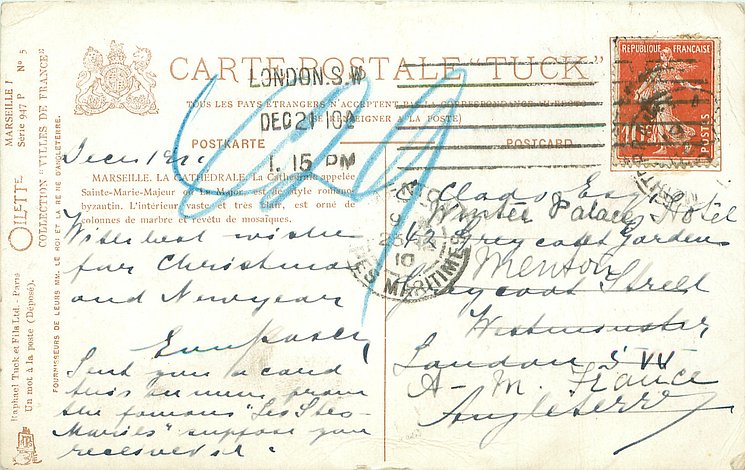 CARTE POSTALE "TUCK"
TOUS LES PAYS ETRANGERS N'ACCEPTENT PAS LA CORRESPONDANCE AU RECTO
(SE RENSEIGNER A LA POSTE)
POSTKARTE
POSTCARD
MARSEILLE. LA CATHÉDRALE. La Cathédrale appelée
Sainte-Marie-Majeur ou La Major est de style romano
byzantin. L'intérieur vaste et très clair, est orné de
colonnes de marbre et revêtu de mosaïques.
With best wishes
for Christmas
and New year
Sent you a card
this a.m. from
the famous "Les Stes-
Maries" suppose you
received it.
LONDON.S.W
DEC 21 10
1.15 PM
RÉPUBLIQUE FRANÇAISE
10
POSTES
25-12
10
ALPES MARITIMES
Winter Palace Hotel
Greycoat Gardens
Menton
Greycoat Street
Westminster
London S W
A-M. France
Angleterre
MARSEILLE I
Série 947 P Nº 5
OILETTE
COLLECTION "VILLES DE FRANCE"
Raphael Tuck et Fils Ltd.-Paris
Un mot à la poste (Déposé).
FOURNISSEURS DE LEURS MM. LE ROI ET LA REINE D'ANGLETERRE.